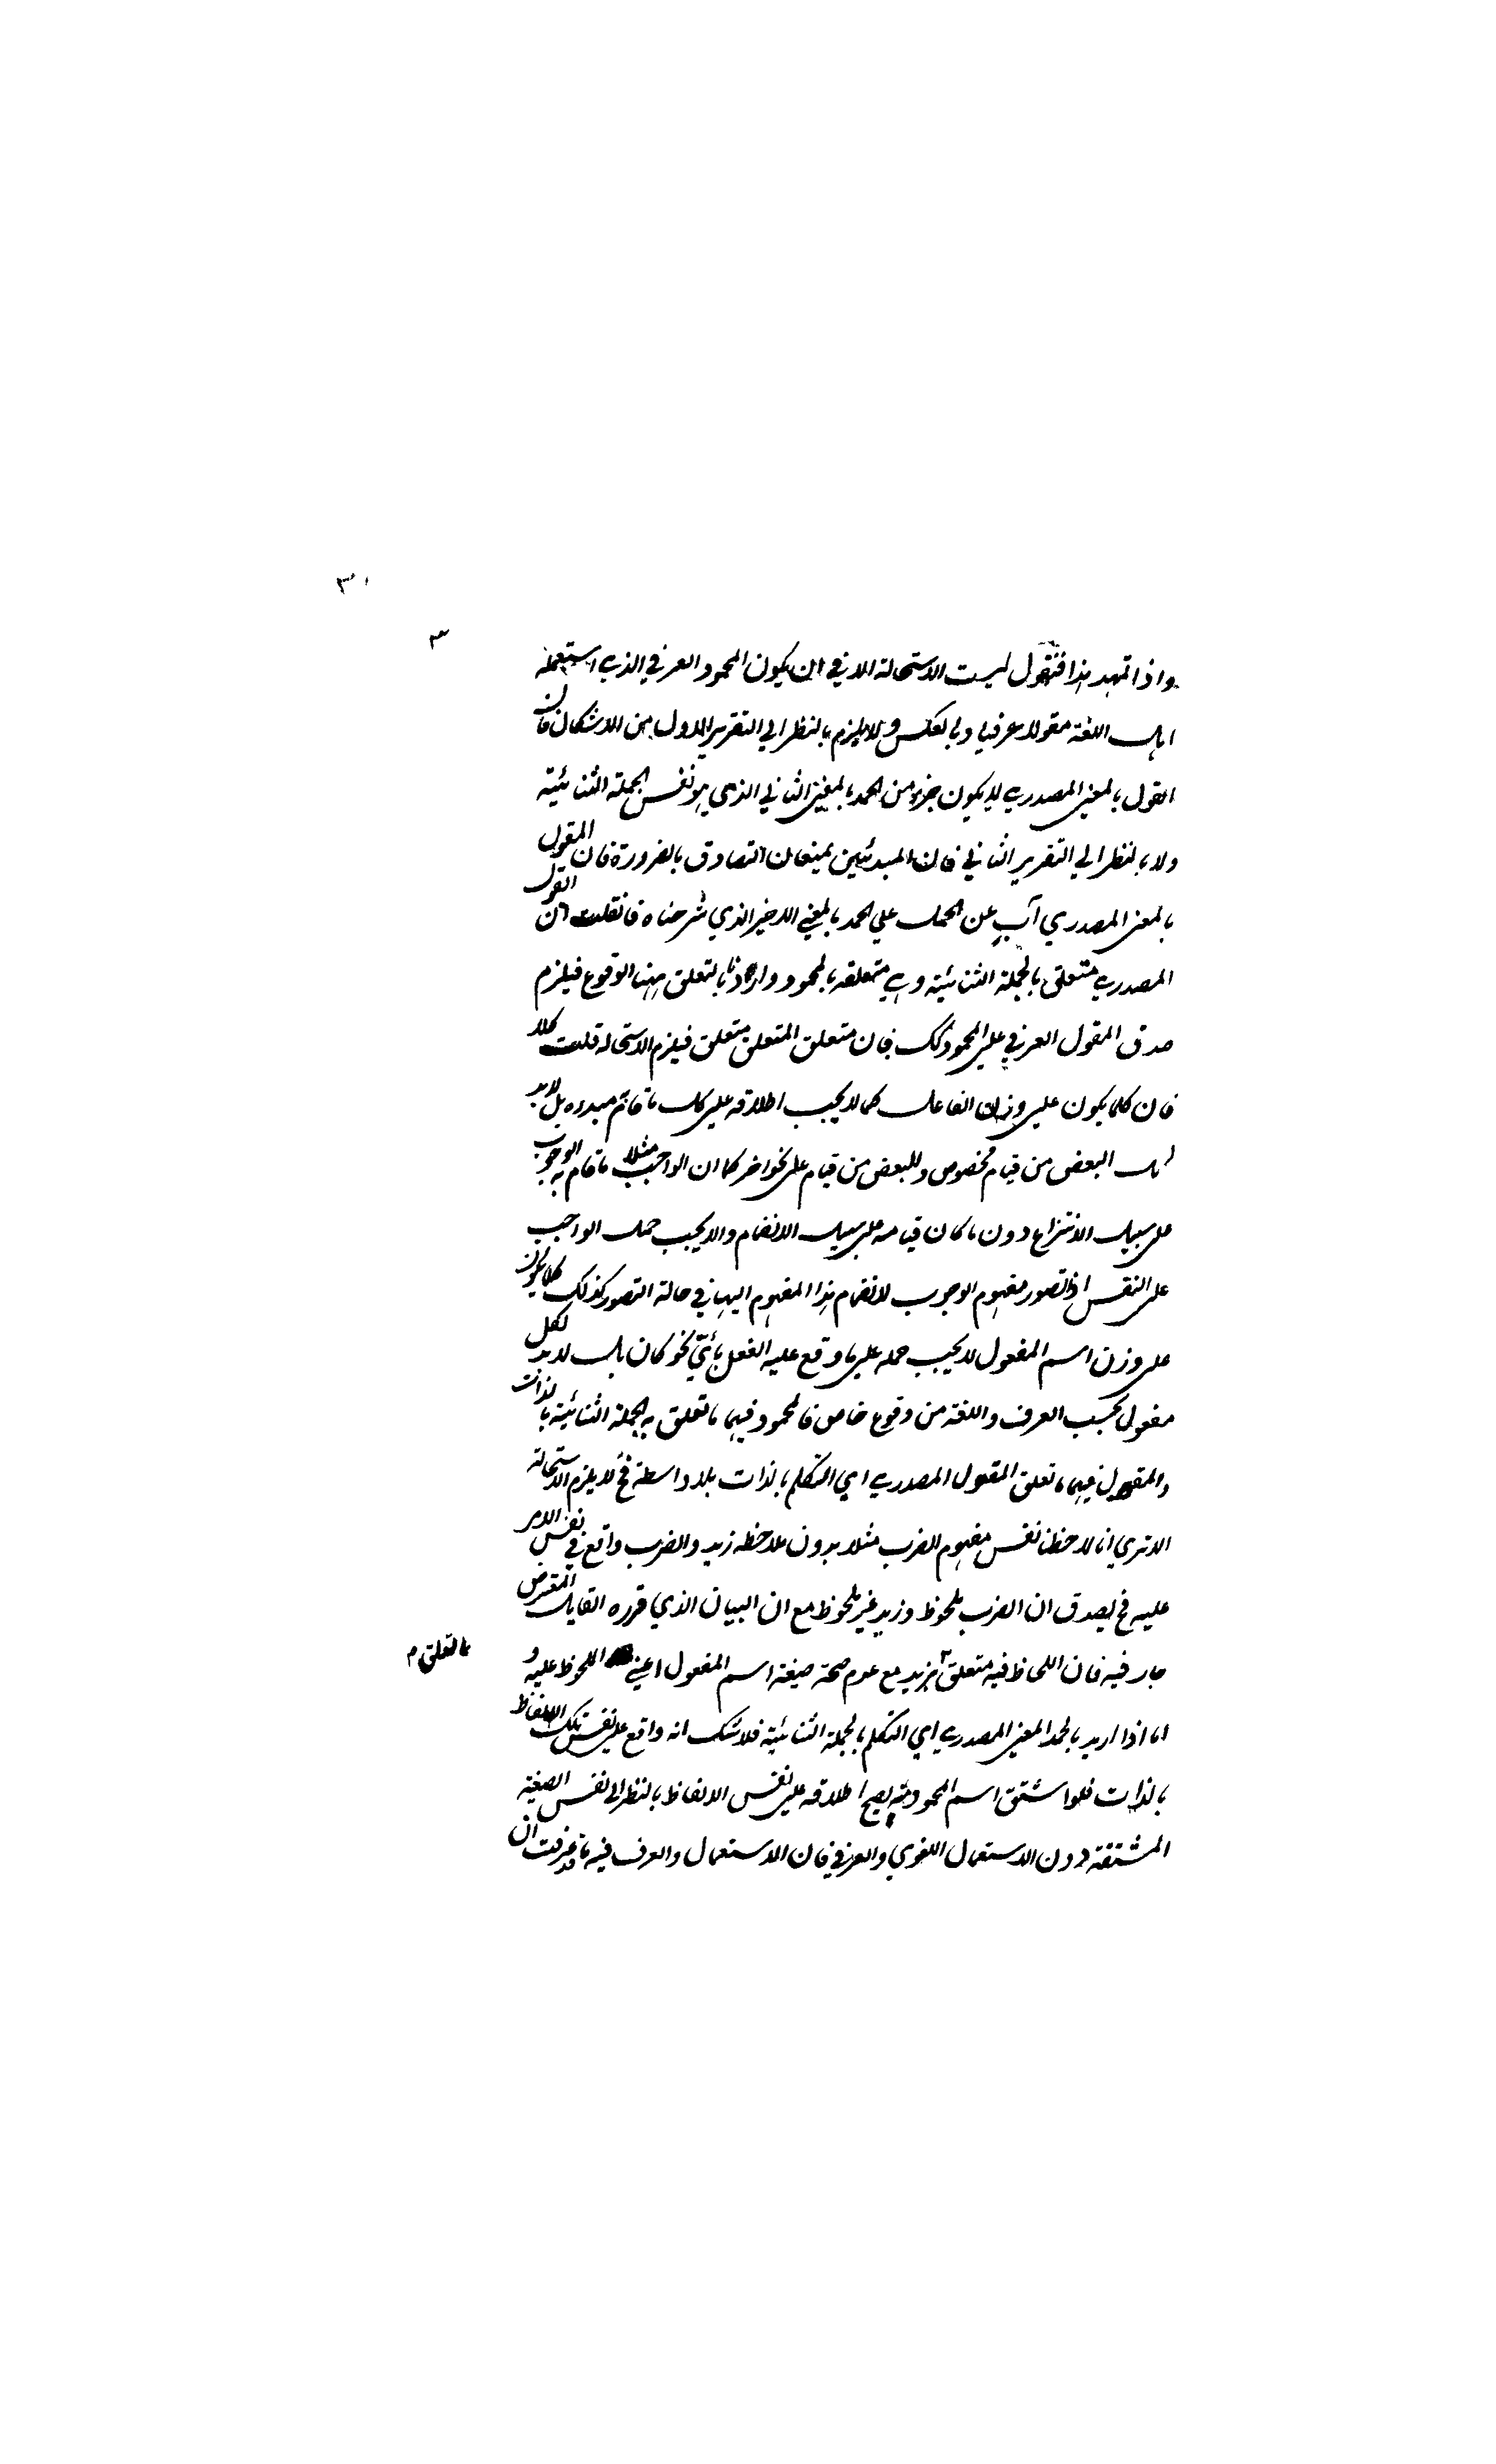 ٣
٣
واذا تمهد هذا فنقول ليست الاستحالة الا في ان يكون المحمود العرفي الذي استعمله
اهل اللغة مقولا عرفيا وبالعكس ولا يلزم بالنظر الي التقرير الاول من الاشكال فان
القول بالمعني المصدري لا يكون جزء من الحمد بالمعني الثاني الذي هو نفس الجملة الثنائية
ولا بالنظر الي التقرير الثاني فان المبدئين يمنعان التصادق بالضرورة فان المقول
بالمعني المصدري آبٍ عن الحمل علي الحمد بالمعني الاخير الذي شرحناه فان قلت ان القول
المصدري متعلق بالجملة الثنائية وهي متعلقه بالمحمود والمراد بالتعلق ههنا الوقوع فيلزم
صدق المقول العرفي علي المحمود كك فان متعلق المتعلق متعلق فيلزم الاستحالة قلت كلا
فان كلما يكون علي وزان الفاعل كما لا يجب اطلاقه علي كل ما قام مبدءه بل لابد
لك البعض من قيام مخصوص وللبعض من قيام علي نحو اخر كما ان الواجب مثلا ما قام به الوجوب
علي سبيل الانتزاع دون ما كان قيامه علي سبيل الانضمام والا يجب حمل الواجب
علي النفس اذا تصور مفهوم الوجوب لانضمام هذا المفهوم اليها في حالة التصور كذلك كلما يكون
علي وزن اسم المفعول لا يجب حمله علي ما وقع عليه الفعل بأيّ نحو كان بل لابد لكل
مفعول بحسب العرف واللغة من وقوع خاص فالمحمود فيهما ما تعلق به الجملة الثنائية بالذات
والمقول فيهما ما تعلق المقول المصدري اي التكلم بالذات بلا واسطة فح لا يلزم الاستحالة
الا تري انا لاحظنا نفس مفهوم الضرب مثلا بدون ملاحظه زيد والضرب واقع في نفس الامر
عليه فح يصدق ان الضرب ملحوظ وزيد غير ملحوظ مع ان البيان الذي قرره القايل المعترض
جار فيه فان اللحاظ فيه متعلق بزيد مع عدم صحة صيغة اسم المفعول اعني الملحوظ عليه و
اما اذا اريد بالحمد المعني المصدري اي التكلم بالجملة الثنائية فلا شك انه واقع علي نفس تلك الالفاظ
بالذات فلو اشتق اسم المحمود منه يصح اطلاقه علي نفس الالفاظ بالنظر الي نفس الصيغة
المشتقة دون الاستعمال اللغوي والعرفي فان الاستعمال والعرف فيه ما قد عرفت ان